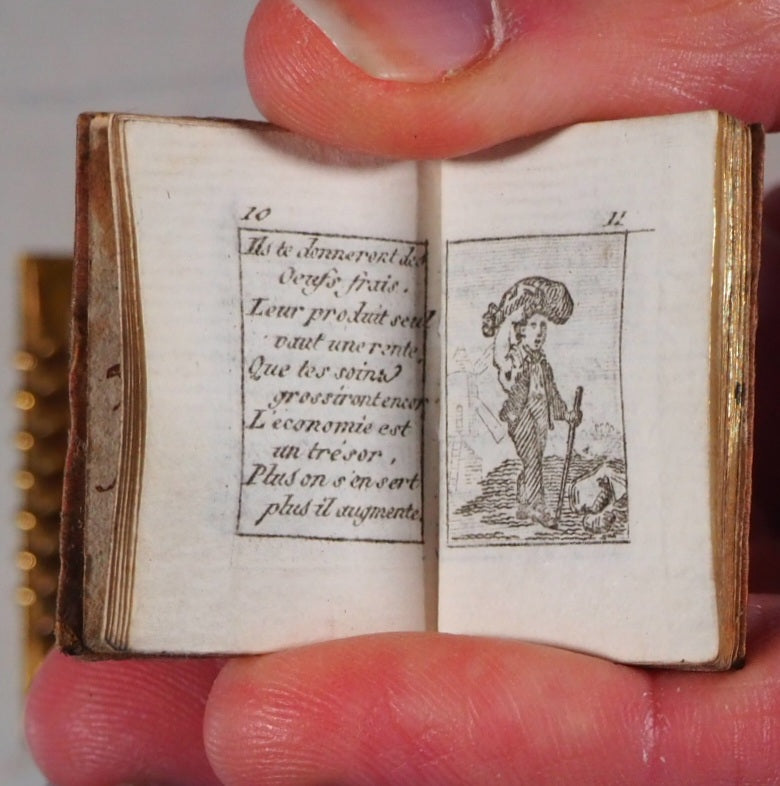 10
Ils te donneront des
Oeufs frais.
Leur produit seul
vaut une rente.
Que tes soins
grossiront encor
L'économie est
un trésor,
Plus on s'en sert
plus il augmente.
11